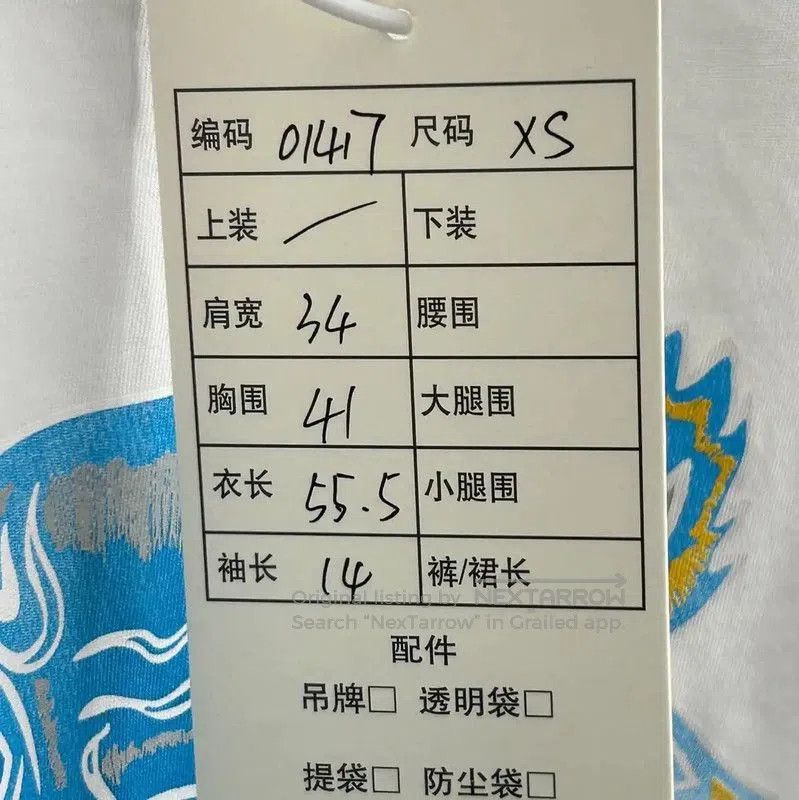 编码 01417 尺码 XS
上装 下装
肩宽 34 腰围
胸围 41 大腿围
衣长 55.5 小腿围
袖长 14 裤/裙长
Original listing by NEXTARROW
Search "NexTarrow" in Grailed app.
配件
吊牌□ 透明袋□
提袋□ 防尘袋□